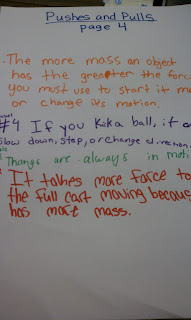 Pushes and Pulls
page 4
.The more mass an object
has the greater the forc
you must use to start it m
or change its motion.
#4 If you kick a ball, it c
slow down, stop, or change direction.
Things are always in moti
It takes more force to
the full cart moving becaus
has more mass.